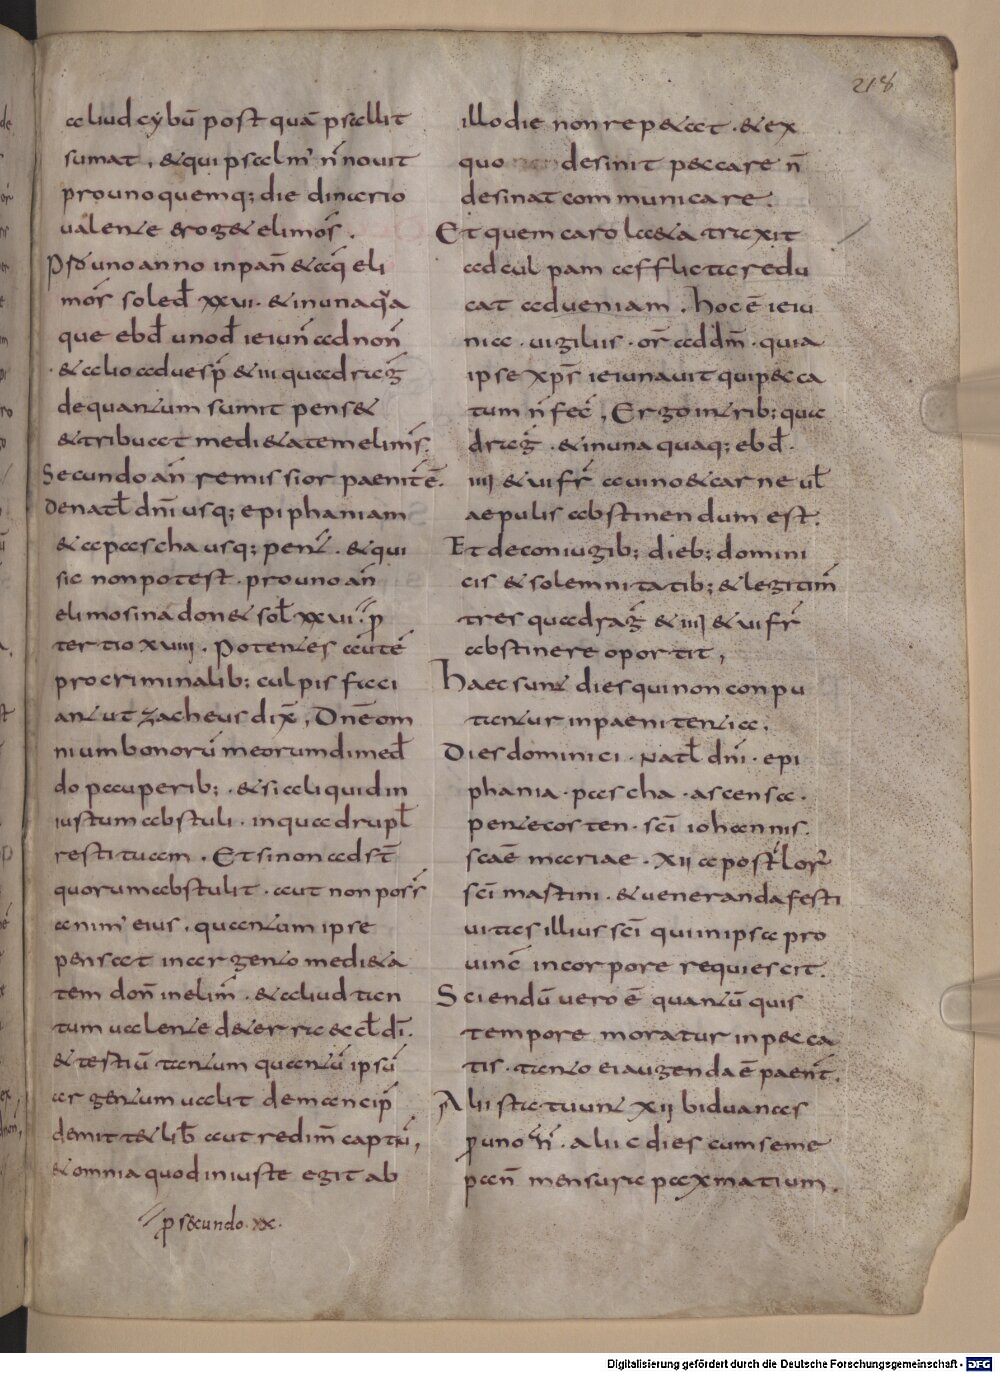 218
aliud cybū post quā psallit
sumat, & qui psalm̄ n̄ novit
pro uno quemq; die dinario
valente erog& elimos̄.
P sđ uno anno in pan̄ & aq̄ eli
mos̄ soled̄ xxvi. & in una q̄a
que ebd̄ uno d̄ ieiun̄ ad non̄
& alio ad vesp̄ & iii quadraḡ
de quantum sumit pens&
& tribuat medi&atem elim̄s.
Secundo an̄ remissior paenit̄ ē.
De natł dn̄i usq; epiphaniam
& a pascha usq; pent̄. & qui
sic non potest. pro uno an̄
elimosina don& soł xxvi. p̄
tertio xviii. Potentes aūtē
pro criminalib; culpis faci
ant ut zacheus dix̄, Dn̄e om
nium bonorū meorum dimed̄
do pauperib; & si aliquid in
iustum abstuli. in quadrupł
restituam. Et si non adst̄
quorum abstulit. aut non poss̄
anim̄ eius. quantum ipse
pensat in argento medi&a
tem don̄ in elim̄. & aliud tan
tum valente de terra & cł dī.
& testiū tantum quantū ipsū
argentum valit de mancip̄
demitt& lib̄ aut redim̄ captiū,
& omnia quod iniuste egit ab
p̄ secundo. xx.
illo die non rep&at. & ex
quo desinit peccare n̄
desinat communicare.
Et quem caro l&a traxit
ad culpam afflicta redu
cat ad veniam. Hoc ē ieiu
nia. vigiliis. or̄ ad dm̄. quia
ipse xp̄s ieiunavit qui pecca
tum n̄ fec̄, Ergo in trib; qua
draḡ. & in una quaq; ebd̄.
iiii & vi fr̄ a vino & carne uł
a epulis abstinendum est.
Et de coniugib; dieb; domini
cis & solemnitatib; & legitim̄
tres quadraḡ & iiii & vi fr̄
abstinere oportit,
Haec sunt dies qui non conpu
tantur in paenitentia.
Dies dominici. natł dn̄i. epi
phania. pascha. ascensa.
pentecosten. sc̄i iohannis.
scāe mariae. xii apostłor̄
sc̄i mastini. & veneranda festi
vitas illius sc̄i qui in ipsa pro
vinc̄ in corpore requiescit.
Sciendū vero ē quantū quis
tempore moratur in pecca
tis. tanto ei augenda ē paenit̄.
Alii statuunt xii biduanas
p̄ uno an̄. alii c dies cum seme
pan̄ mensura paxmatium.
Digitalisierung gefördert durch die Deutsche Forschungsgemeinschaft - DFG